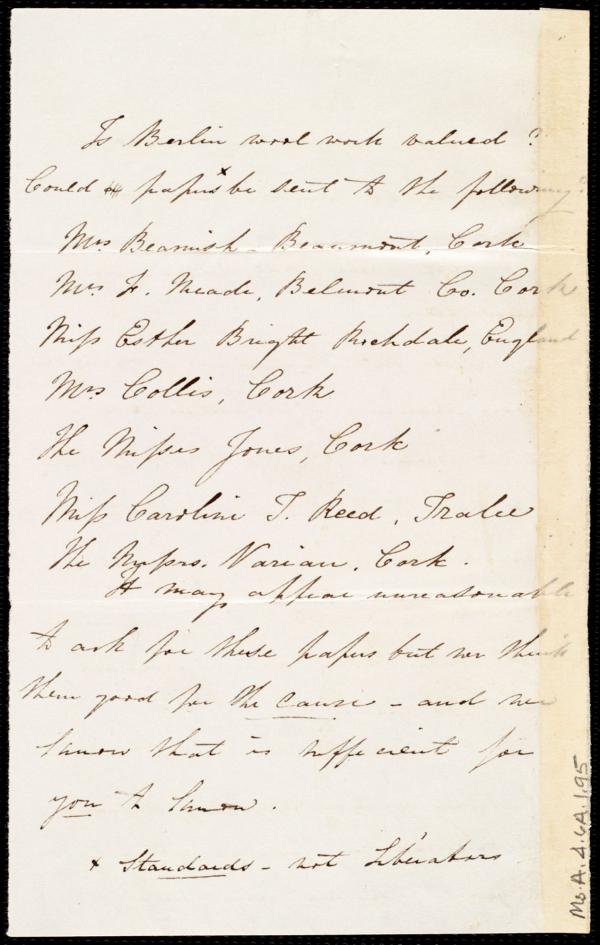 Is Berlin wool work valued?
Could papers x be sent to the following?
Mrs Beamish - Beaumont, Cork
Mrs F. Meade, Belmont Co. Cork
Miss Esther Bright Rochdale, England
Mrs Collis, Cork
The Misses Jones, Cork
Miss Caroline T. Reed, Tralee
The Misses. Varian, Cork.
It may appear unreasonable
to ask for these papers but we think
them good for the cause - and we
know that is sufficient for
you to know.
x Standards - not Liberators
Ms. A. 4. 6A. 1. 95